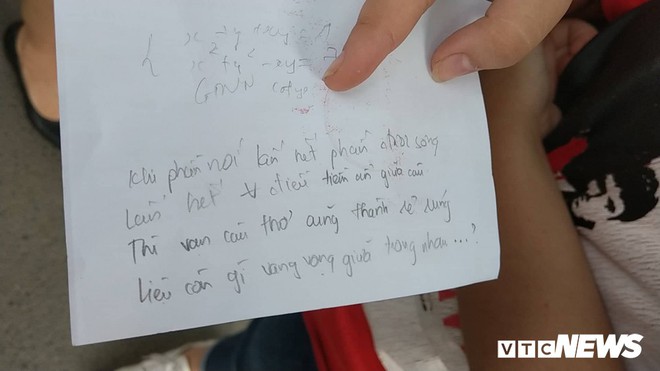 x - y + xy =
x² + y² - xy = 7
GTNN
Khi phần nói lấn hết phần được sống
Lấn hết điều tiềm ẩn giữa câu
Thì vạn câu thơ cũng thành sẽ sàng
Liệu còn gì vang vọng giữa trong nhau...?
VTC NEWS